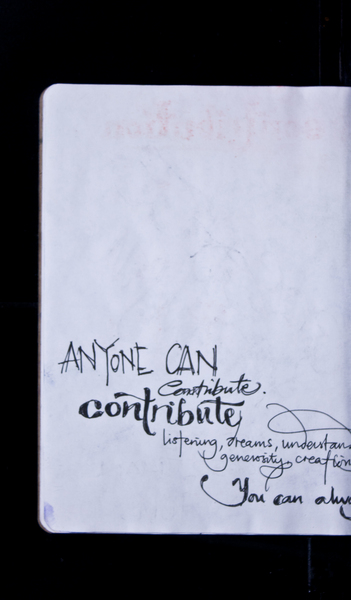 ANYONE CAN
Contribute.
contribute
listening, dreams, understan
generosity, creation
You can alw